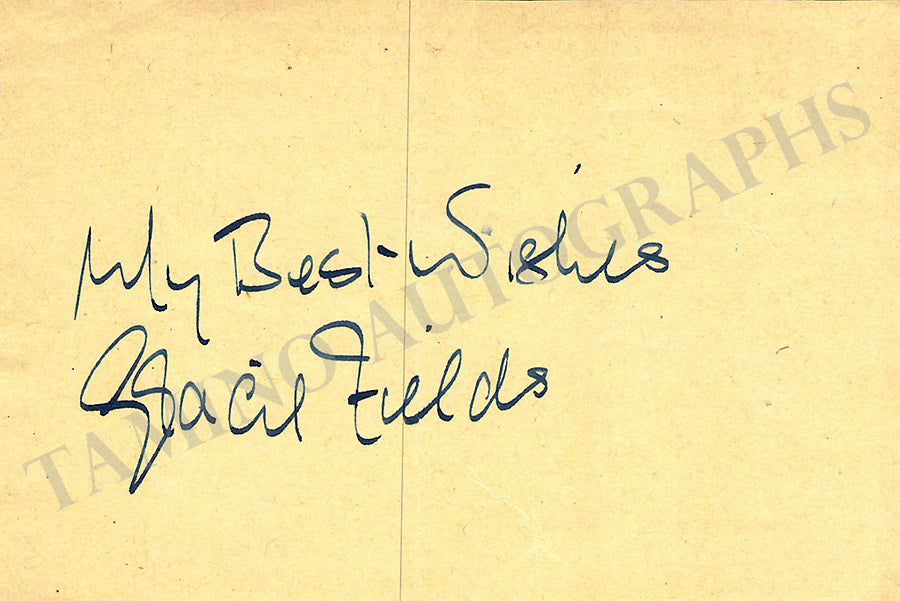 My Best Wishes
Gracie Fields
TAMINO AUTOGRAPHS